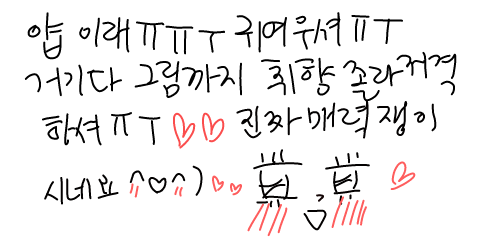 얍 이래ㅠㅠㅜ 귀여우셔ㅠㅜ
거기다 그림까지 취향 졸라저격
하셔ㅠㅜ♡♡ 진짜매력쟁이
시네요 ^♡^)♡♡ ♡